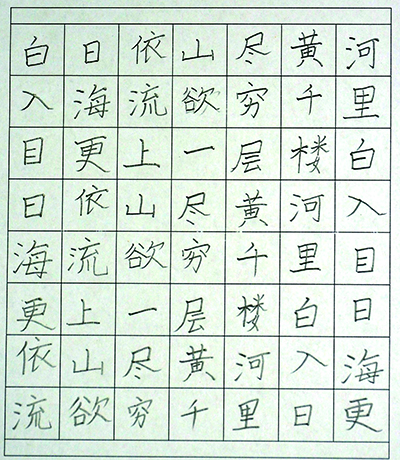 白日依山尽黄河
入海流欲穷千里
目更上一层楼白
日依山尽黄河入
海流欲穷千里目
更上一层楼白日
依山尽黄河入海
流欲穷千里日更